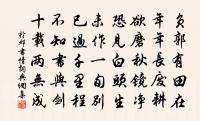 負郭有田在
年年長廢耕
欲磨秋鏡淨
恐見白頭生
未作一旬別
已過千里程
不知書與劍
十載兩無成
於鄴書情詞典網集